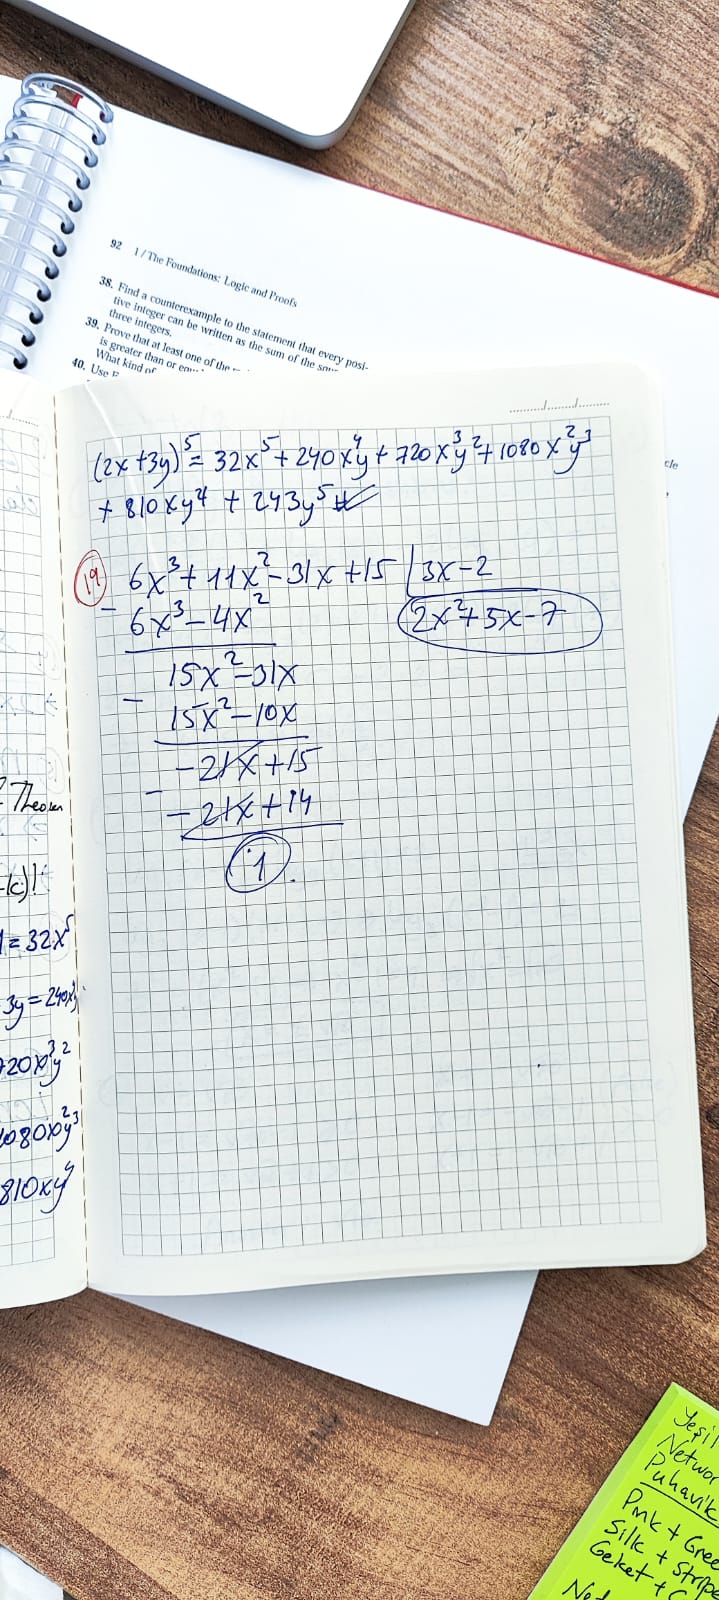 92 1 / The Foundations: Logic and Proofs
38. Find a counterexample to the statement that every posi-
tive integer can be written as the sum of the
three integers.
39. Prove that at least one of the
is greater than or
What kind of
40. Use
(2x+3y)⁵ = 32x⁵ + 240x⁴y + 720x³y² + 1080x²y³
+ 810xy⁴ + 243y⁵
19
6x³ + 11x² - 31x + 15 | 3x-2
- 6x³ - 4x²
2x² + 5x - 7
15x² - 31x
- 15x² - 10x
-21x + 15
- -21x + 14
1.
Theorem
-k)!
1 = 32x⁵
3y = 240x⁴y
720x³y²
1080x²y³
810xy⁴
Yeşil
Networ
Puhavik
Pmk + Gree
Silk + Stripe
Geket +